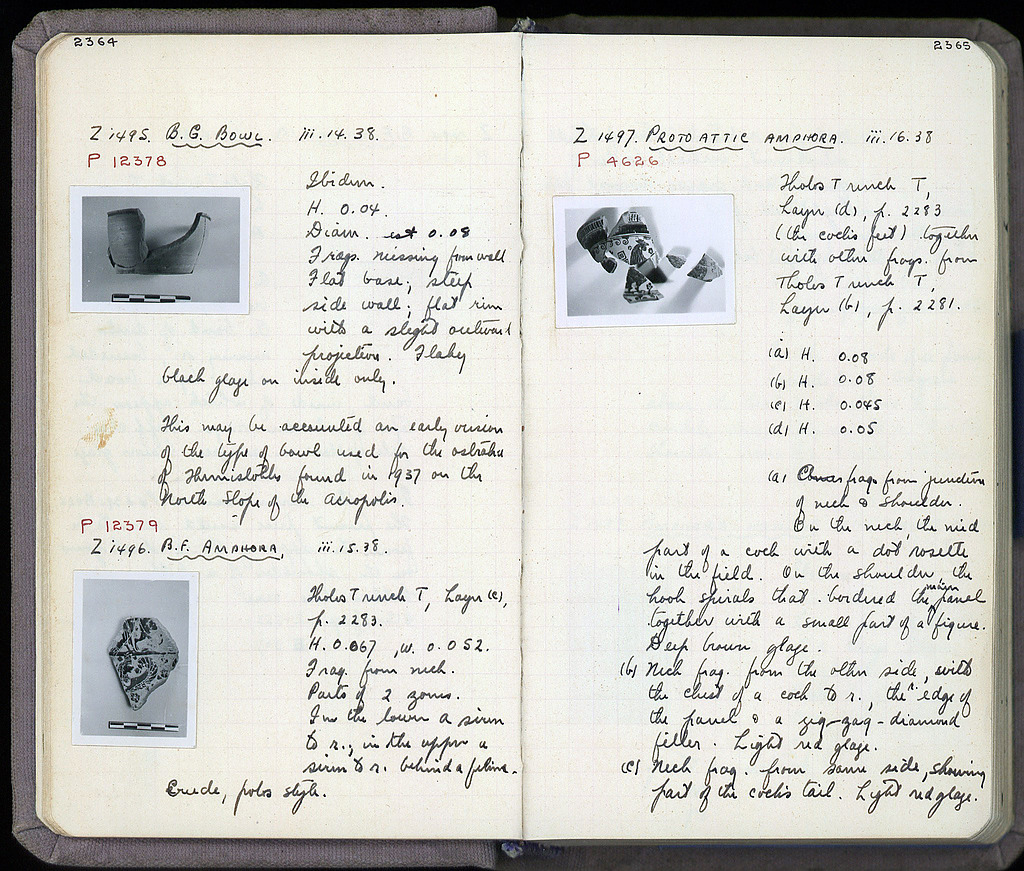 2364
Z 1495. B.G. BOWL. iii.14.38.
P 12378
Ibidem.
H. 0.04.
Diam. est 0.08
Frags. missing from wall.
Flat base; steep
side wall; flat rim
with a slight outward
projection. Flaky
black glaze on inside only.
This may be accounted an early version
of the type of bowl used for the ostraka
of Themistokles found in 1937 on the
North Slope of the Acropolis.
P 12379
Z 1496. B.F. AMPHORA, iii.15.38.
Tholos Trench T, Layer (c),
p. 2283.
H. 0.067, W. 0.052.
Frag. from neck.
Parts of 2 zones.
In the lower a siren
to r., in the upper a
siren to r. behind a feline.
Crude, polos style.
2365
Z 1497. PROTOATTIC AMPHORA. iii.16.38
P 4626
Tholos Trench T,
Layer (d), p. 2283
(the cock's feet) together
with other frags. from
Tholos Trench T,
Layer (b), p. 2281.
(a) H. 0.08
(b) H. 0.08
(c) H. 0.045
(d) H. 0.05
(a) frags from junction
of neck & shoulder.
On the neck, the mid
part of a cock with a dot rosette
in the field. On the shoulder, the
hook spirals that bordered the main panel
together with a small part of a figure.
Deep brown glaze.
(b) Neck frag. from the other side, with
the chest of a cock to r., the r. edge of
the panel & a zig-zag-diamond
filler. Light red glaze.
(c) Neck frag. from same side, showing
part of the cock's tail. Light red glaze.